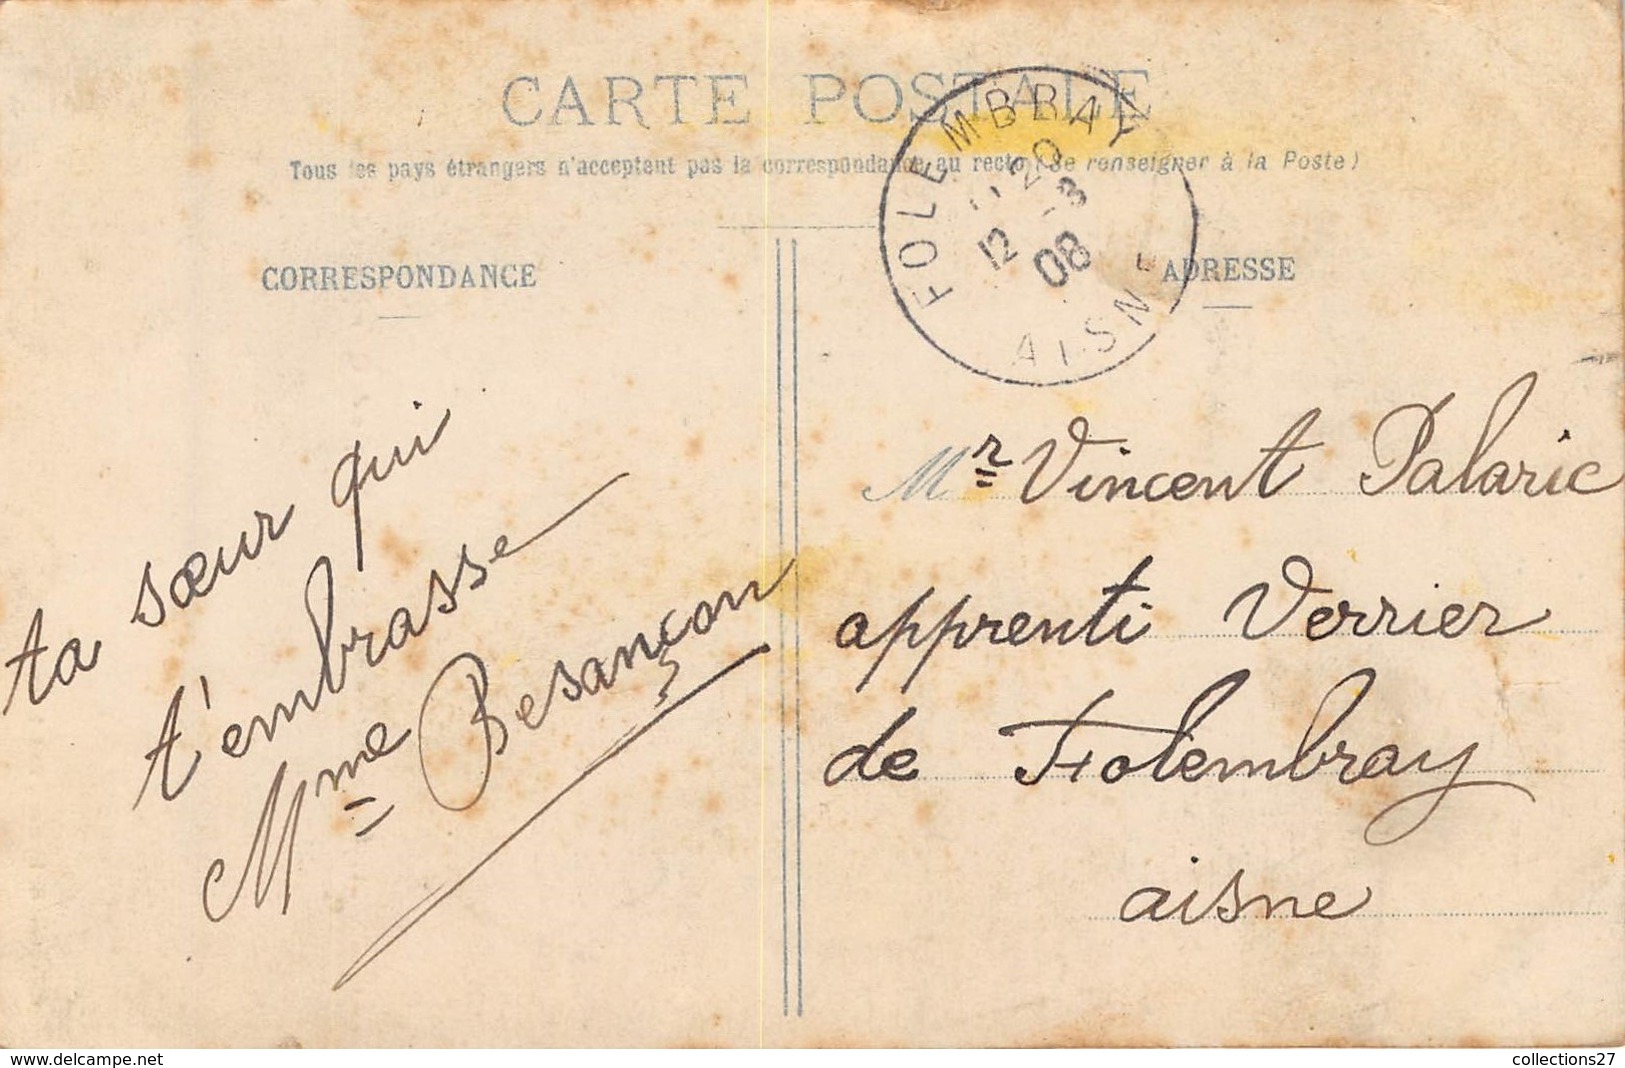 CARTE POSTALE
Tous les pays étrangers n'acceptent pas la correspondance au recto (Se renseigner à la Poste)
FOLEMBRAY
20
12 -3
08
AISNE
CORRESPONDANCE
ADRESSE
ta sœur qui
t'embrasse
Mme Besançon
Mr Vincent Palaric
apprenti Verrier
de Folembray
aisne
www.delcampe.net
collections27